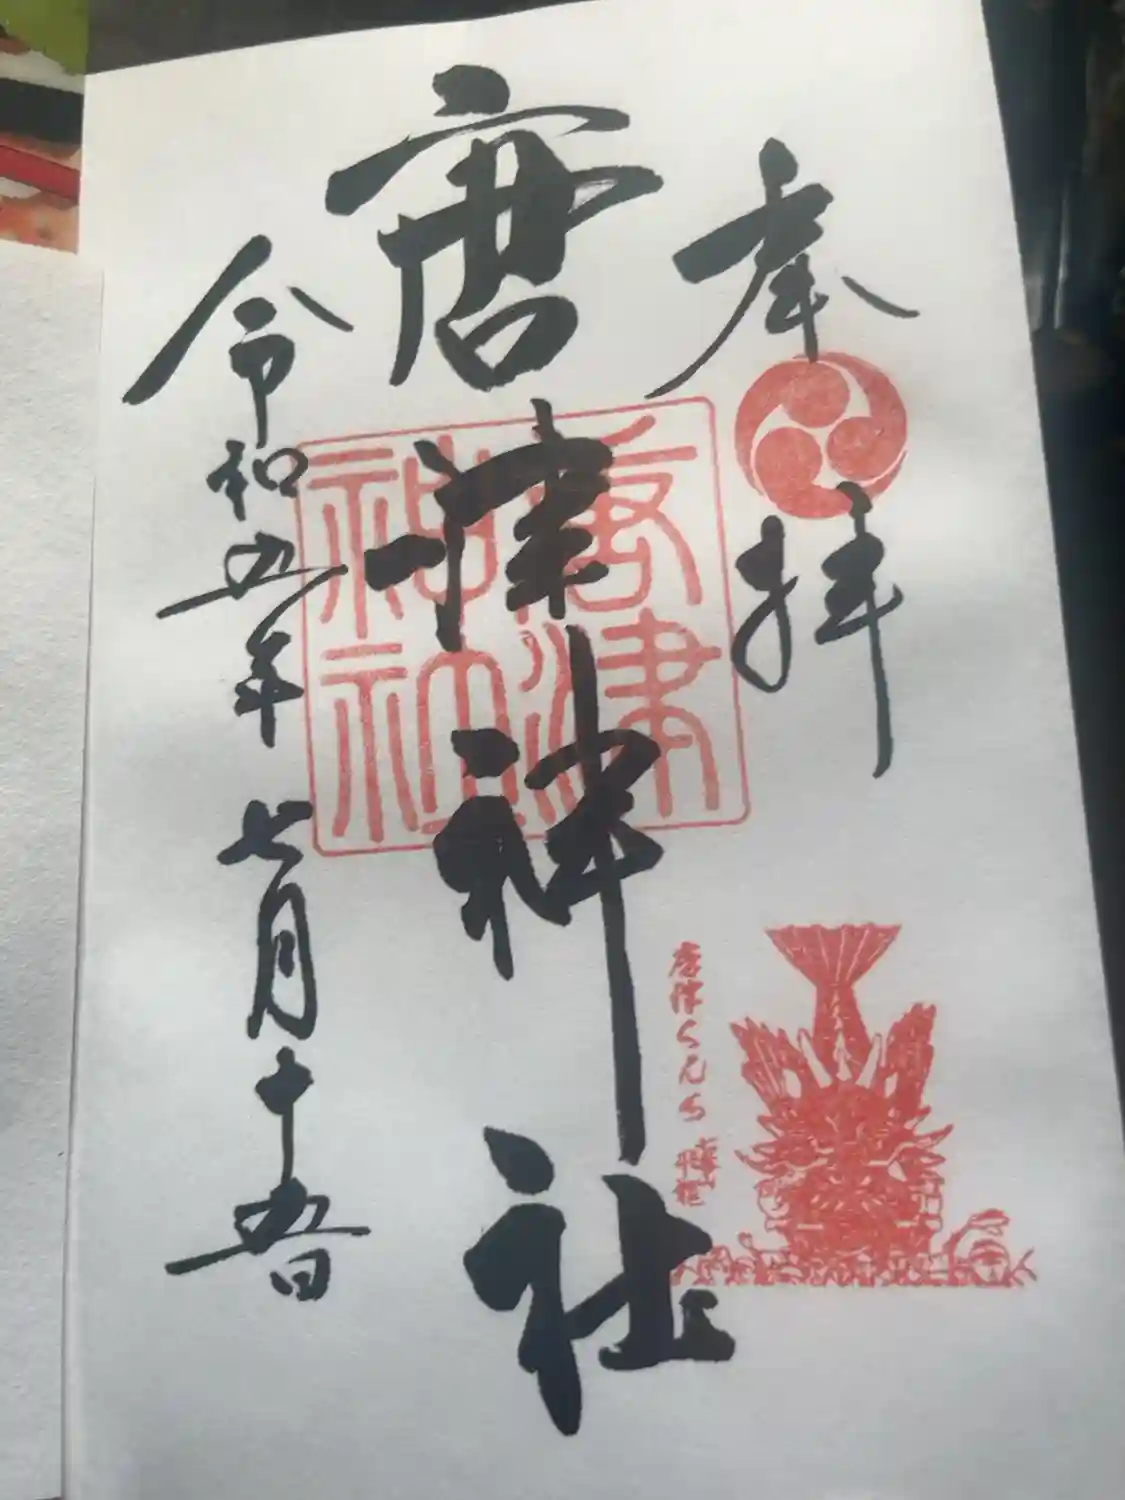 奉拝
唐津神社
令和五年七月十五日
唐津
神社
唐津くんち